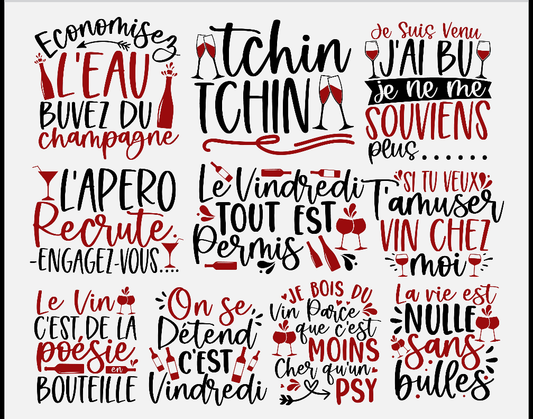 Economisez
L'EAU
BUVEZ DU
champagne
tchin
TCHIN
Je Suis Venu
J'AI BU
je ne me
SOUVIENS
plus......
L'APERO
Recrute
-ENGAGEZ-VOUS...
Le Vindredi
TOUT EST
Permis
SI TU VEUX
T'amuser
VIN CHEZ
moi
Le Vin
C'EST DE LA
poésie
en
BOUTEILLE
On se
Détend
C'EST
Vindredi
JE BOIS DU
Vin Parce
que c'est
MOINS
Cher qu'un
PSY
La vie est
NULLE
sans
bulles